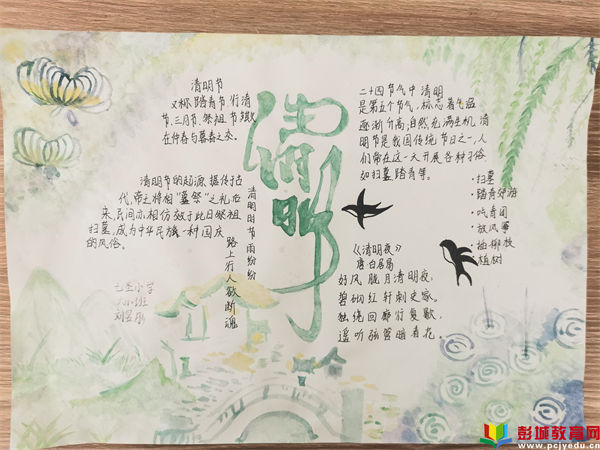 清明节
又称踏青节、行清
节、三月节、祭祖节,
在仲春与暮春之交。
清明节的起源,据传于古
代,帝王将相"墓祭"之礼,后
来,民间亦相仿效于此日祭祖
扫墓,成为中华民族一种固定
的风俗。
清明
清明时节雨纷纷
路上行人欲断魂
二十四节气中清明
是第五个节气,标志着气温
逐渐升高;自然充满生机,清
明节是我国传统节日之一,人
们常在这一天开展各种习俗
如扫墓踏青等。
·扫墓
·踏青郊游
·吃青团
·放风筝
·插柳枝
·植树
《清明夜》
唐白居易
好风胧月清明夜,
碧砌红轩刺史家。
独绕回廊行复歇,
遥听弦管暗看花。
小学
班
刘
彭城教育网
www.pcjyedu.cn